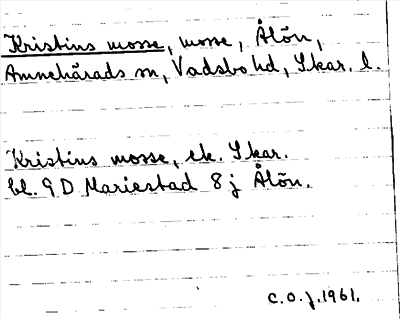 Kristins mosse, mosse, Ålön,
Amnehärads sn, Vadsbo hd, Skar. l.
Kristins mosse, ek. Skar.
bl. 9 D Mariestad 8 j Ålön.
C.O.J. 1961.